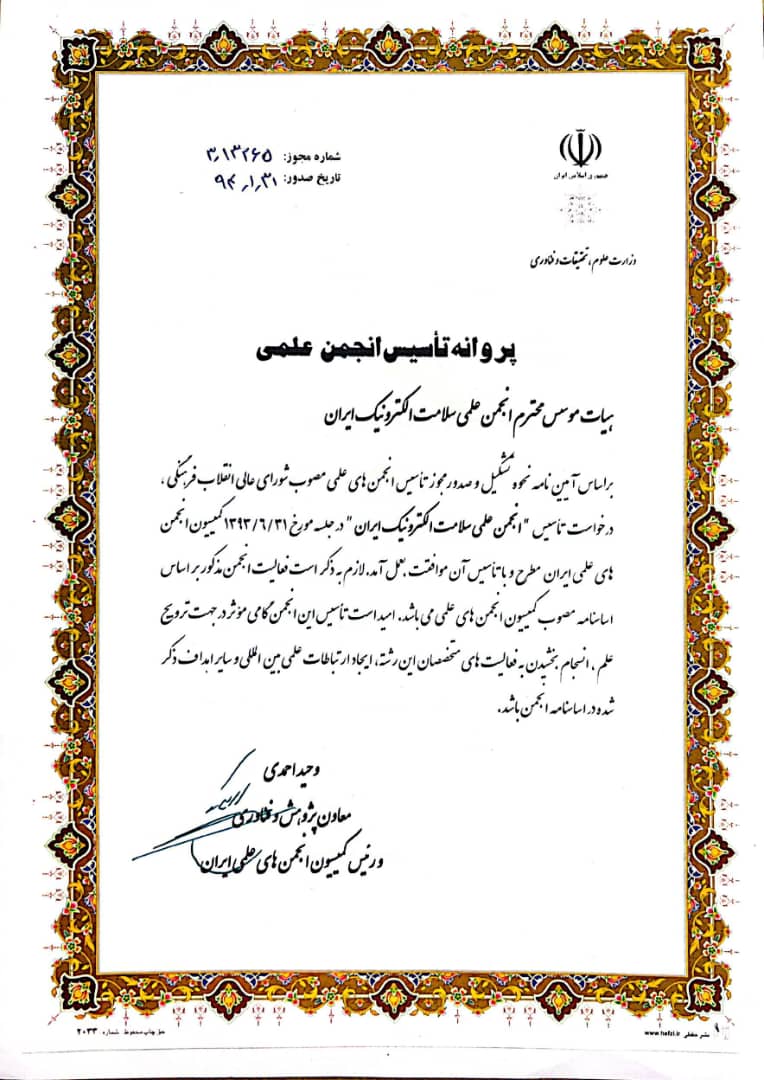 جمهوری اسلامی ایران
وزارت علوم، تحقیقات و فناوری
شماره مجوز: ۳٫۱۳۲۶۵
تاریخ صدور: ۹۴٫۱٫۳۱
پروانه تأسیس انجمن علمی
هیات موسس محترم انجمن علمی سلامت الکترونیک ایران
براساس آیین نامه نحوه تشکیل و صدور مجوز تأسیس انجمن های علمی مصوب شورای عالی انقلاب فرهنگی ،
درخواست تأسیس "انجمن علمی سلامت الکترونیک ایران" در جلسه مورخ ۱۳۹۳/۶/۳۱ کمیسیون انجمن
های علمی ایران مطرح و با تأسیس آن موافقت بعمل آمد. لازم به ذکر است فعالیت انجمن مذکور بر اساس
اساسنامه مصوب کمیسیون انجمن های علمی می باشد. امید است تأسیس این انجمن گامی مؤثر در جهت ترویج
علم ، انسجام بخشیدن به فعالیت های متخصصان این رشته، ایجاد ارتباطات علمی بین المللی و سایر اهداف ذکر
شده در اساسنامه انجمن باشد.
وحید احمدی
معاون پژوهش و فناوری
و رئیس کمیسیون انجمن های علمی ایران
نشر حفظی www.hafzi.ir
حق چاپ محفوظ شماره ۲۰۳۳